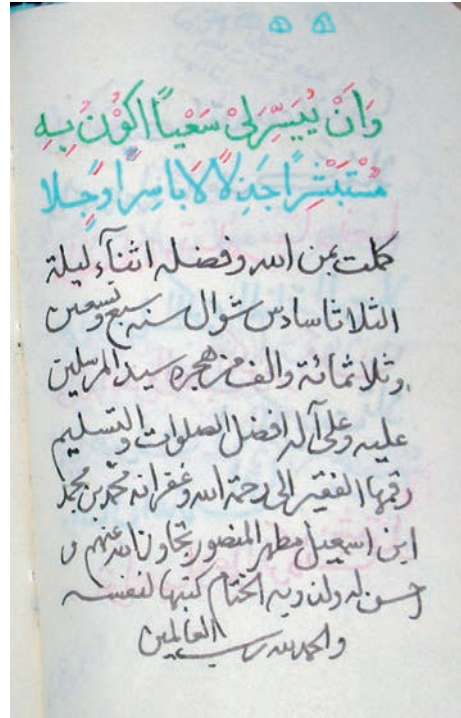 وَاَنْ يُيَسِّرَ لِيْ سَعْيًا اَكُوْنُ بِهِ
مُسْتَبْشِرًا جَذِلًا لَا بَاسِرًا وَجِلا
كملت بمن الله وفضله اثناء ليلة
الثلاثا سادس شوال سنه سبع وتسعين
وثلاثمائة والف من هجره سيد المرسلين
عليه وعلى آله افضل الصلوات والتسليم
رقمها الفقير الى رحمة الله وغفرانه محمد بن محمد
ابن اسمعيل مطهر المنصور تجاوز الله عنهم و
احسن له ولوالديه الختام كتبها لنفسه
والحمد لله رب العالمين